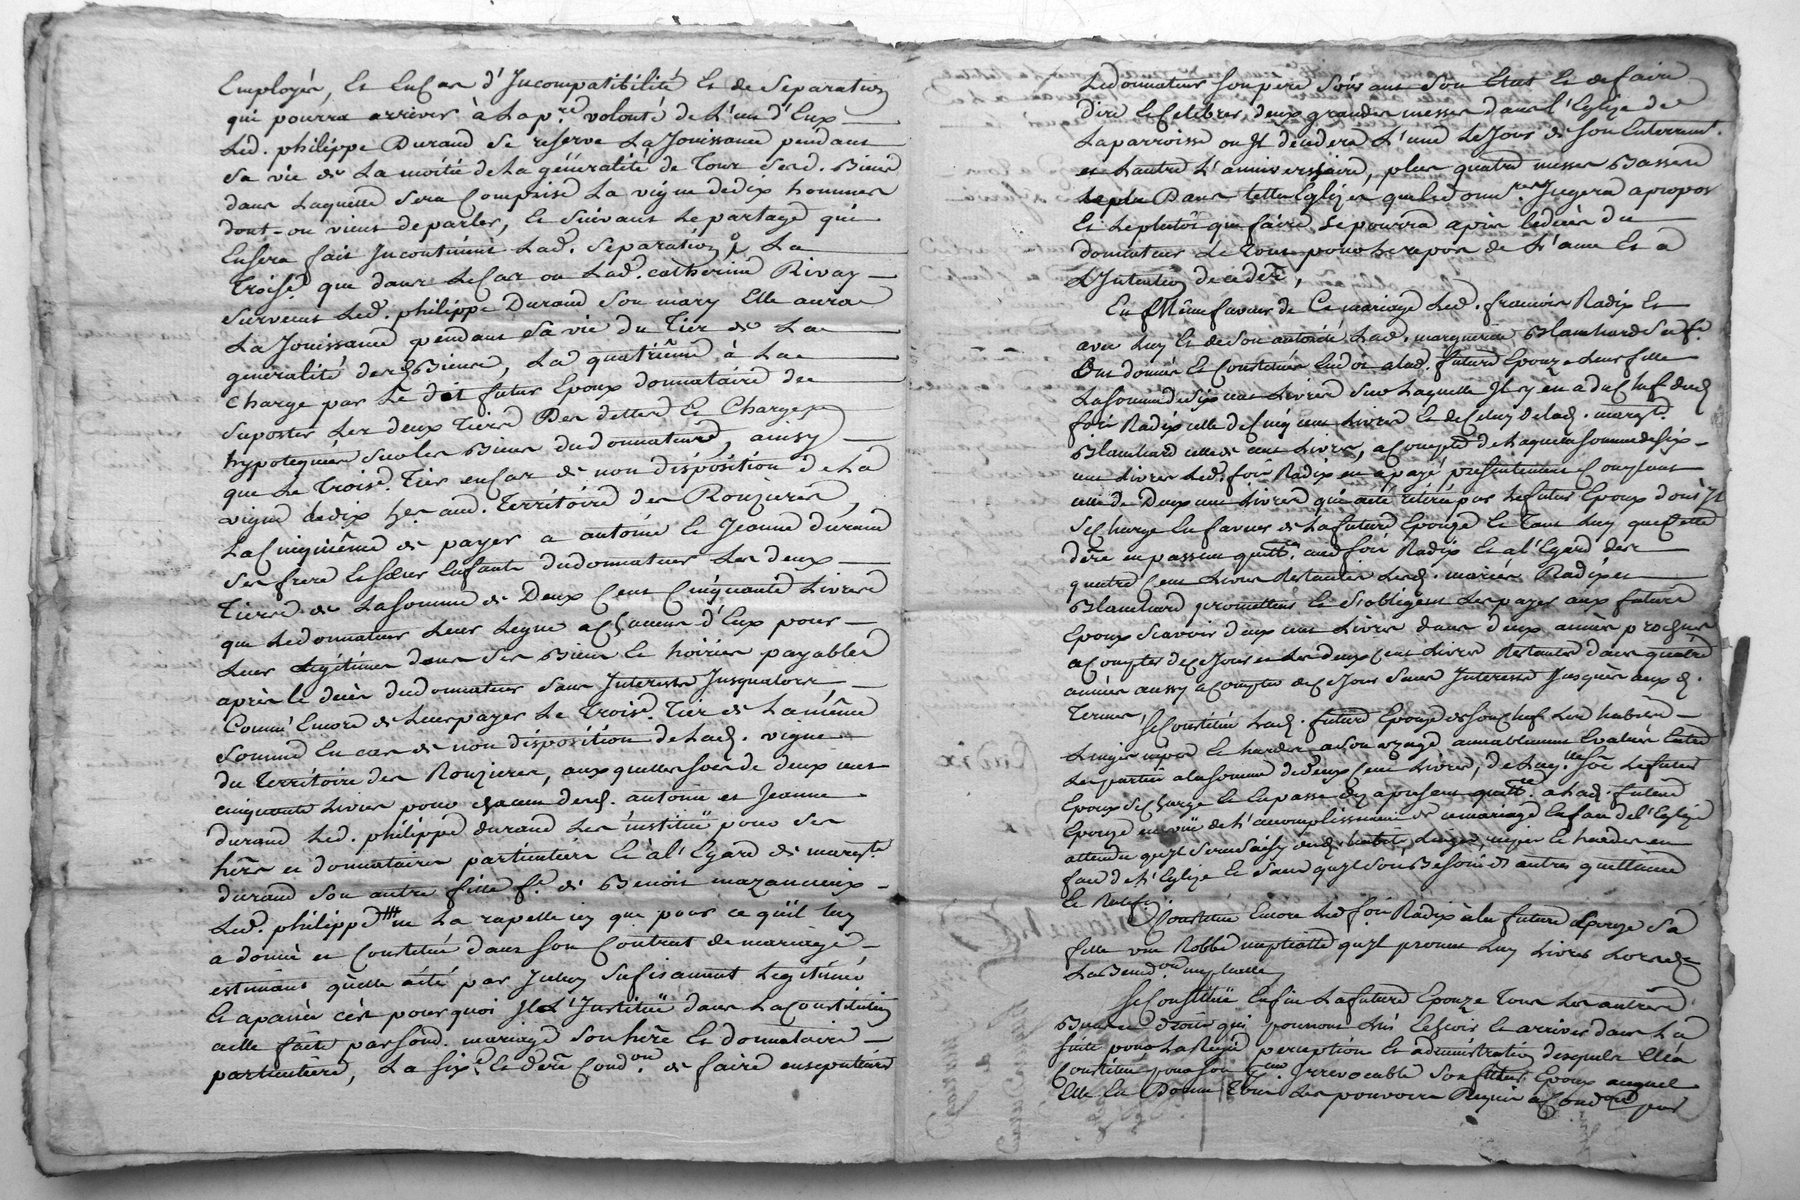 Employés, Et En Cas d'Incompatibilité Et de Separation
qui pourra arriver à La p.re volonté de L'un d'Eux
Led. philippe Durand Se reserve La Jouissance pendant
Sa vie de La moitié de La généralité de Tous Sesd. Biens
dans Laquelle Sera Comprise La vigne de dix hommes
dont-on vient de parler, Et Suivant Le partage qui
En Sera fait Incontinent Lad. Separation, La
Trois.e que dans Le Cas ou Lad. catherine Rivay
Survecut Led. philippe Durand Son mary Elle aura
La Jouissance pendant Sa vie du Tier de La
generalité desd. Biens, La quatrième à La
Charge par Le dit futur Epoux donnataire de
Suporter Les deux Tiers Des dettes Et Charges
hypotequées Sur Les Biens du donnateur, ainsy
que Le Trois.e Tier en cas de non disposition de La
vigne de dix h.es aud. Territoire des Rouzieres,
La Cinquième de payer a antoine Et Jeanne durand
Ses frere Et Sœur Enfants du donnateur Les deux
Tiers de La Somme de Deux Cent Cinquante Livres
que Le donnateur Leur Legue a Chacun d'Eux pour
Leur Legitimes dans Ses Biens Et hoiries payables
après le decès du donnateur Sans Interests Jusqualors
Comme Encore de Leur payer Le Trois.e Tier de La même
Somme En cas de non disposition de Lad. vigne
du Territoire des Rouzieres, aux quelles Soes de deux cent
cinquante Livres pour chacun desd. antoine et Jeanne
durand Led. philippe durand Les instituë pour Ses
hérs et donnataires particuliers Et à l'Egard de marg.te
durand Son autre fille f.e de Benoit mazancieux
Led. philippe ne La rapelle icy que pour ce qu'il luy
a donné et Constitué dans Son Contrat de mariage
estimant qu'elle a été par Iceluy Sufisament Legitimé
Et apanée c'est pourquoi Il L'Instituë dans La Constitution
a elle faite par Sond. mariage Son hére Et donnataire
particulière, La Six.e Et dére Cond.on de faire ensepulturer
Le donnateur Son pere Suivant Son Etat Et de faire
dire Et Celebrer deux grandes messes dans l'Eglise de
La parroisse ou Il decedera L'une Le Jour de Son Enterrem.t
et Lautre L'anniversaire, plus quatre messes Basses
Dans telles Eglizes que Led. donn.re Jugera apropos
Et Le plutôt que faire Se pourra après Le decès du
donnateur Le Tout pour Le repos de L'ame Et a
L'Intention de ce dér,
En Même faveur de Ce mariage Led. francois Radix Et
avec Luy Et de Son autorité Lad. marguerite Blanchard Sa f.e
Ont donné Et Constitué En dot a lad. future Epouze Leur fille
La Somme de Six cent Livres Sur Laquelle Il y en a du Chef dud.
foi Radix celle de Cinq cent Livres Et de Celuy de Lad. marg.te
Blanchard celle de cent Livres, a Compte de Laquelle Somme de Six
cent Livres Led. foi Radix en a payé presentement Comptant
celle de Deux cent Livres qui a été retirée par Le futur Epoux dont Il
Se Charge En faveur de La future Epouze Et Tant Luy que Cette
dére en passent quitt.ce aud. foi Radix Et a l'Egard des
quatre Cent Livres Restantes Lesd. mariés Radix et
Blanchard promettent Et S'obligent Les payer aux futurs
Epoux Scavoir deux cent Livres dans deux années prochaines
a Compter de Ce Jour et Les deux Cent Livres Restantes dans quatre
années aussy a Compter de Ce Jour Sans Interests Jusques aux d.
Termes, Se Constitue Lad. future Epouze de Son Chef Les habits
Linges nipes Et hardes a Son uzage amiablement Evalués Entre
Les parties a la Somme de deux Cent Livres, de Laq.lle Soe Le futur
Epoux Se Charge Et En passe dez apresent quitt.ce a Lad. future
Epouze en vuë de L'accomplissement de ce mariage En face de l'Eglize
attendu qu'Il Sera Saisy desd. habits, Linges, nipes Et hardes en
face de L'Eglize Et Sans qu'Il Soit Besoin d'autres quittances
Et Recus.
Constitue Encore Led. foi Radix à La future Epouze Sa
fille une Robbe nuptialle qu'Il promet Luy Livrer Lors de
La Bened.on nuptialle
Se Constituë Enfin La future Epouze Tous Les autres
Biens et Droits qui pourront Lui Echoir Et arriver dans La
Suite pour La Regie perception Et administration desquels Elle a
Constitué pour Son p.eur Irrevocable Son futur Epoux auquel
Elle En Donne Tous Les pouvoirs Requis a Cond.on que